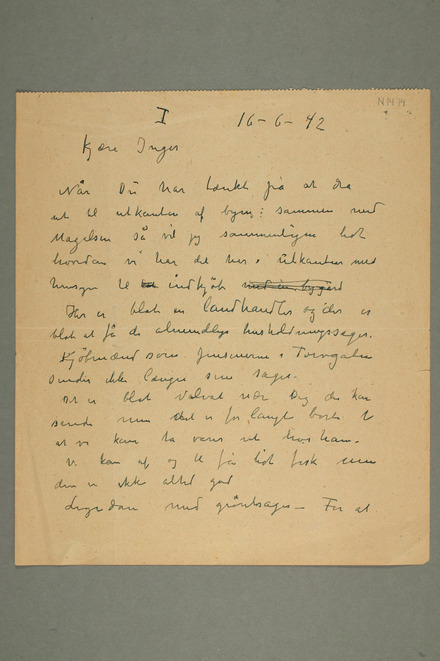 N 1414
I 16-6-42
Kjære Inger
Når Du har tænkt på at dra
ut til utkanten af byen sammen med
så vil jeg sammenligne lidt
hvordan vi har det her i utkanten med
hensyn til indkjøb
Her er blot en landhandler og der er
blot at få de almindelige husholdningssager.
Kjøbmænd som i Torvgaten
sender ikke længer sine sager.
Det er blot nær Dig der kan
sende men det er for langt borte til
at vi kan ta varer ut hos ham.
Vi kan af og til få lidt fisk men
den er ikke altid god
Ligedan med grøntsager – For at